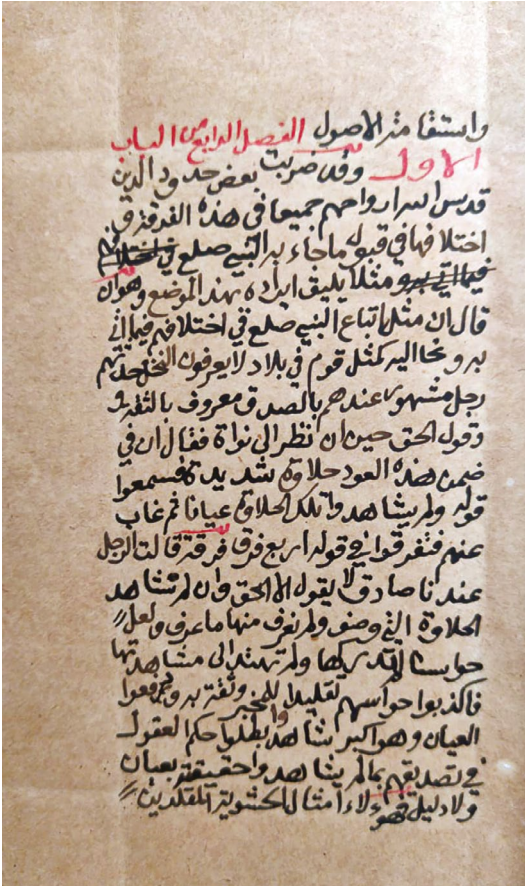 واستقامة الاصول الفصل الرابع من الباب
الاول وقد ضربت بعض حدود الدين
قدس الله ارواحهم جميعا في هذه الفرقة و
اختلافها في قبول ما جاء به النبي صلع في اختلافهم
فيما اتي به ومثلا يليق ايراده بهذا الموضع وهو ان
قال ان مثل اتباع النبي صلع في اختلافهم فيما اتي
به ودعا اليه كمثل قوم في بلاد لا يعرفون النخل حدثهم
رجل مشهور عندهم بالصدق معروف بالثقة
وقول الحق حين ان نظر الى نواة فقال ان في
ضمن هذه العود حلاوة شديدة فسمعوا
قوله ولم يشاهدوا تلك الحلاوة عيانا ثم غاب
عنهم فتفرقوا في قوله اربع فرق فرقة قالت الرجل
عندنا صادق لا يقول الا الحق وان لم نشاهد
الحلاوة التي وصف ولم نعرف منها ما عرف ولعل
حواسنا لم تدركها ولم تهتد الى مشاهدتها
فاكذبوا حواسهم تقليدا للمخبر وثقة به ودفعوا
العيان وهو اكبر شاهد وابطلوا حكم العقول
في تصديقهم بما لم يشاهدوا حقيقته بعيان
ولا دليل فهؤلاء امثال الحشوية المقلدين